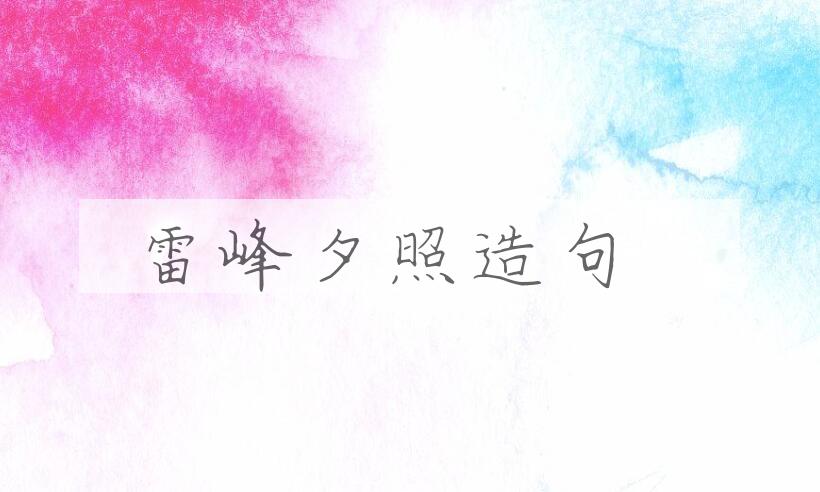 雷峰夕照造句